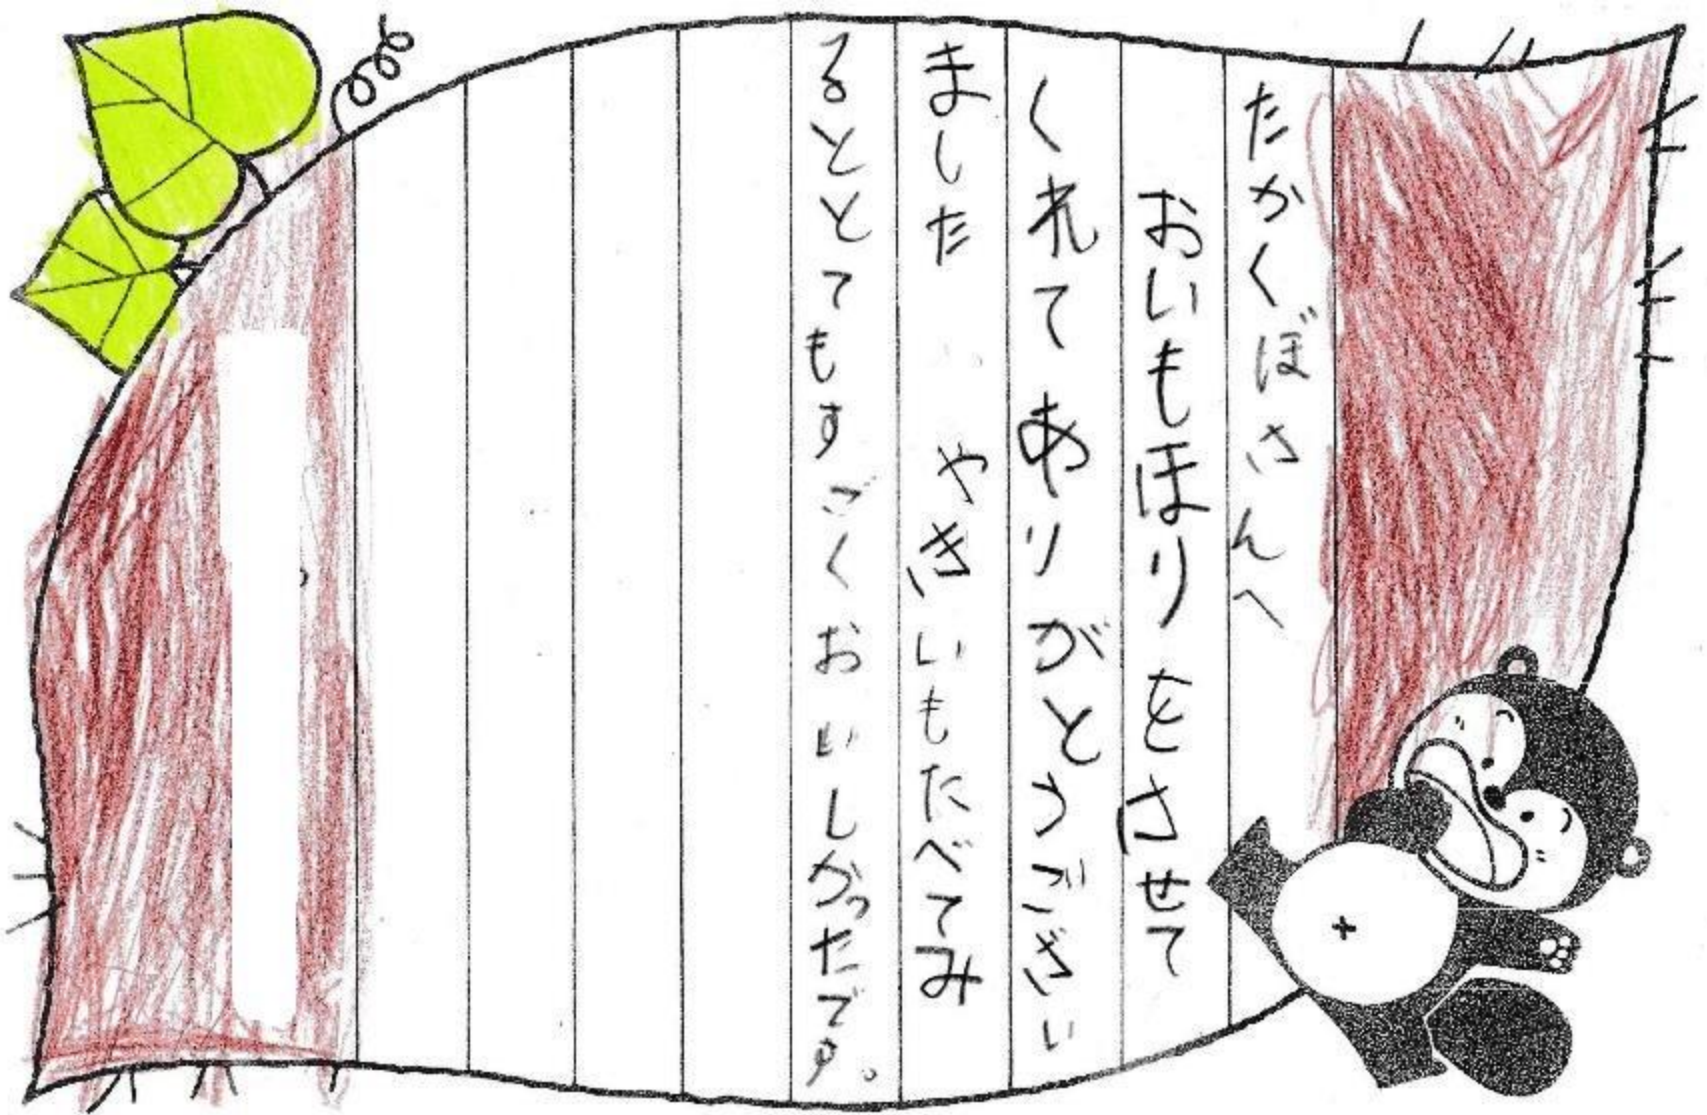 たかくぼさんへ
おいもほりをさせて
くれてありがとうござい
ました　やきいもたべてみ
るととてもすごくおいしかったです。